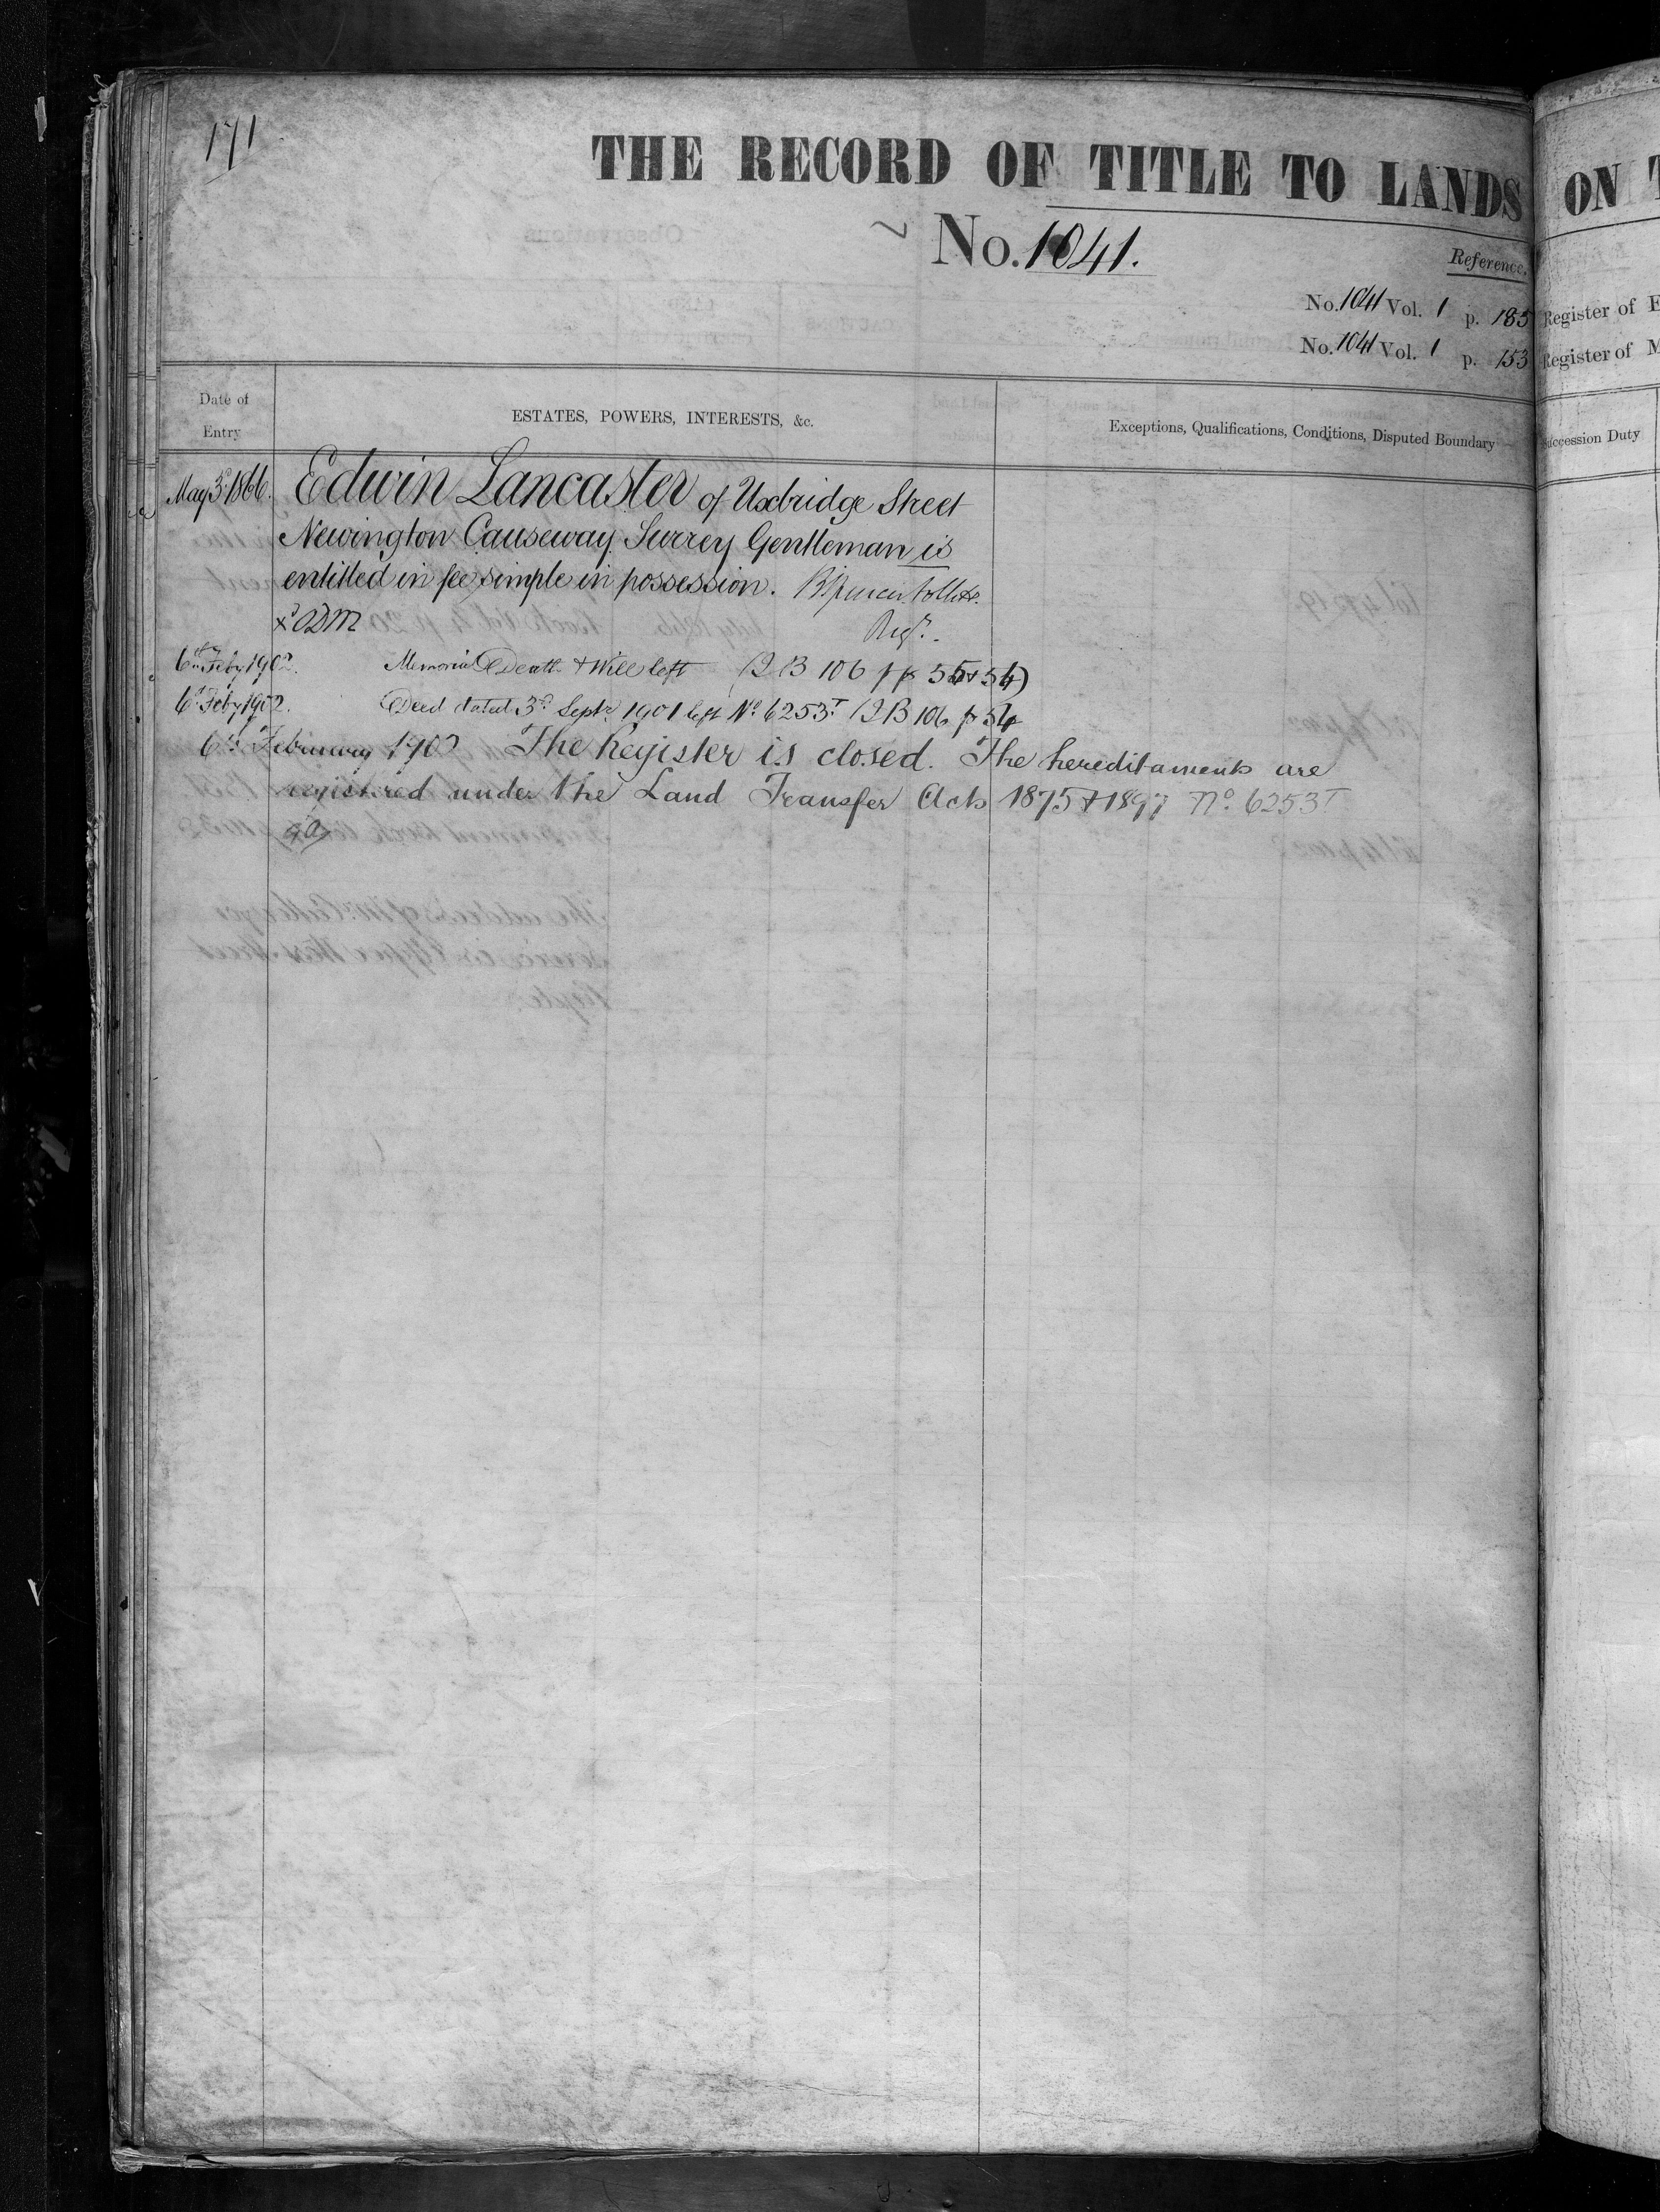 171
THE RECORD OF TITLE TO LANDS ON
No. 1041.
Reference.
No. 1041 Vol. 1 p. 183 Register of E
No. 1041 Vol. 1 p. 153 Register of M
Date of Entry
ESTATES, POWERS, INTERESTS, &c.
Exceptions, Qualifications, Conditions, Disputed Boundary
Succession Duty
May 3d 1866. Edwin Lancaster of Uxbridge Street
Newington Causeway Surrey Gentleman is
entitled in fee simple in possession.
Regr.
6th Feby 1902. Memorial Death & Will left (2 B 106 pp 55 & 54)
6th Feby 1902. Deed dated 3d Septr 1901 left No. 6253T (2 B 106 p 54
6th February 1902 The Register is closed. The hereditaments are
registered under the Land Transfer Acts 1875 & 1897 No. 6253T